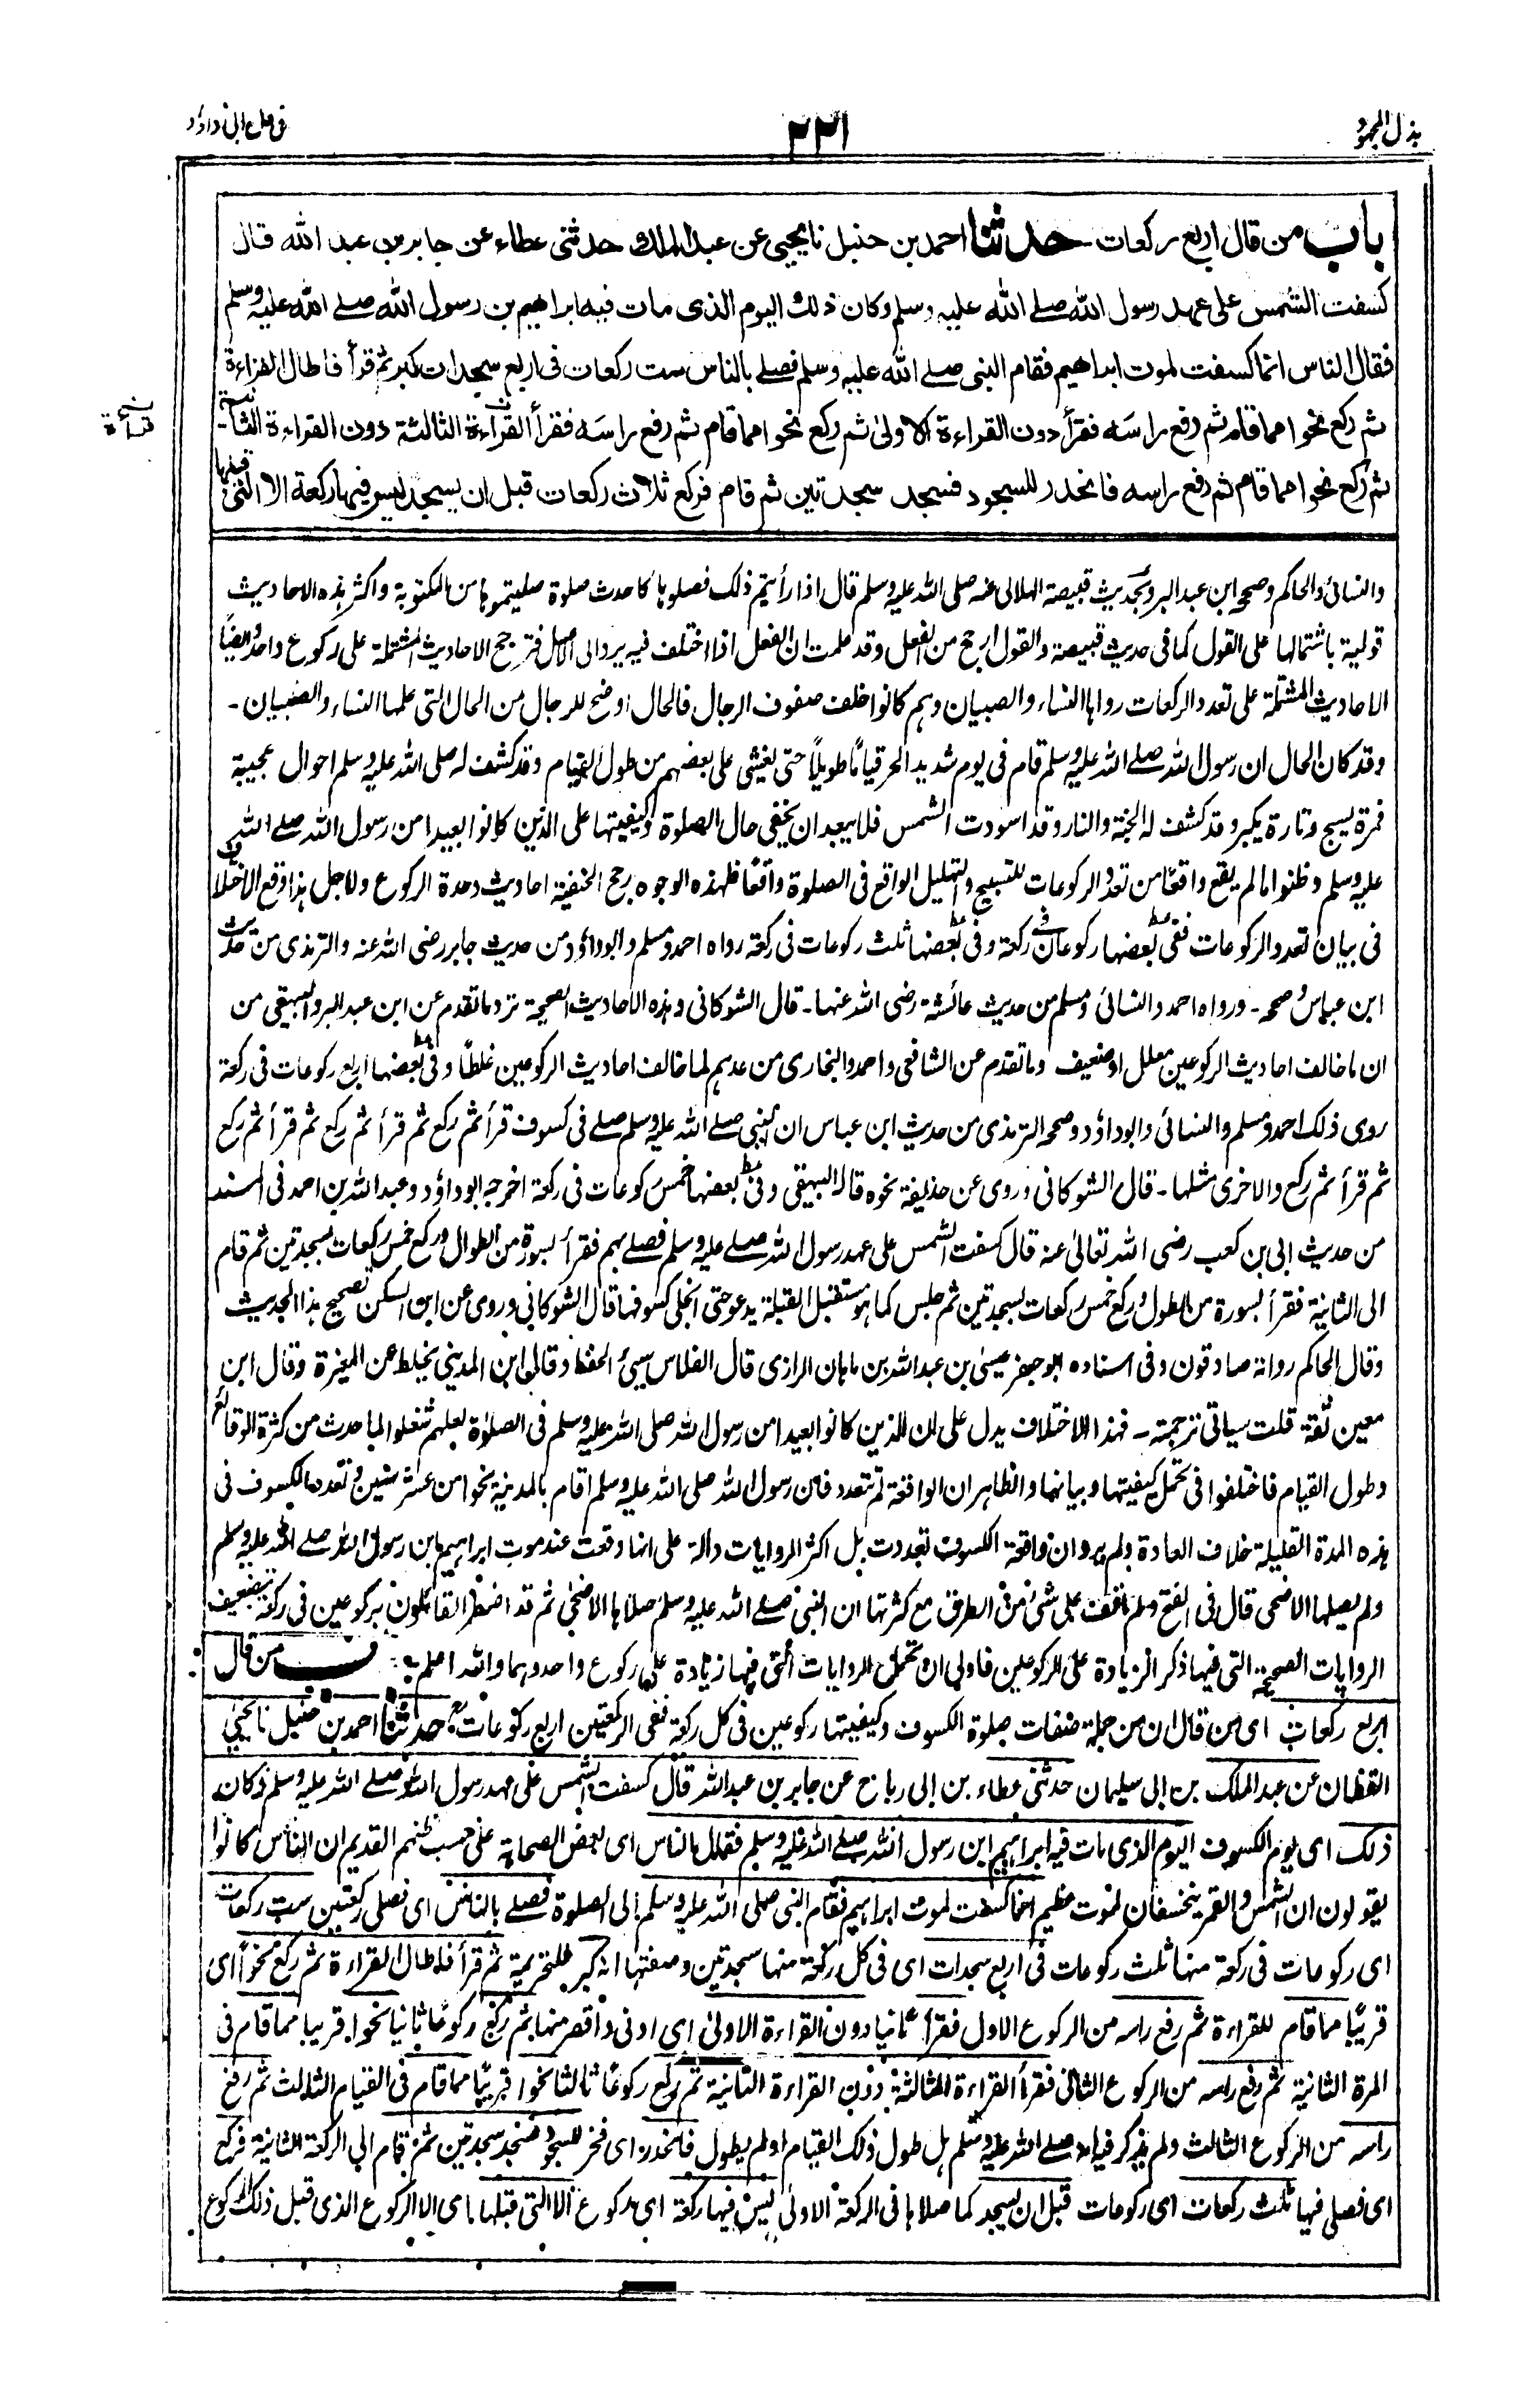 بذل المجهود
٢٢١
فی حل ابی داؤد
باب من قال اربع ركعات - حدثنا احمد بن حنبل نا يحيى عن عبد الملك حدثنی عطاء عن جابر بن عبد الله قال
كسفت الشمس على عهد رسول الله صلے الله عليه وسلم وكان ذلك اليوم الذی مات فيه ابراهيم بن رسول الله صلے الله عليه وسلم
فقال الناس انما كسفت لموت ابراهيم فقام النبی صلے الله عليه وسلم فصلے بالناس ست ركعات فی اربع سجدات كبر ثم قرأ فاطال القراءة
ثم ركع نحوا مما قام ثم رفع راسه فقرأ دون القراءة الاولیٰ ثم ركع نحوا مما قام ثم رفع راسه فقرأ القراءة الثالثة دون القراءة الثانية
قراءة
ثم ركع نحوا مما قام ثم رفع راسه فانحدر للسجود فسجد سجدتين ثم قام فركع ثلاث ركعات قبل ان يسجد ليس فيها ركعة الا التی قبلها
والنسائی والحاكم وصححه ابن عبد البر وبحديث قبيصة الهلالی عنه صلی الله عليه وسلم قال اذا رأيتم ذلك فصلوها كاحدث صلوة صليتموها من المكتوبة واكثر هذه الاحاديث
قولية باشتمالها علی القول كما فی حديث قبيصة والقول ارجح من الفعل وقد علمت ان الفعل اذا اختلف فيه يرد الی الاصل فترجح الاحاديث المشتملة علی ركوع واحد وايضًا
الاحاديث المشتملة علی تعدد الركعات رواها النساء والصبيان وهم كانوا خلف صفوف الرجال فالحال اوضح للرجال من الحال التی علمها النساء والصبيان -
وقد كان الحال ان رسول الله صلے الله عليه وسلم قام فی يوم شديد الحر قيامًا طويلًا حتی يغشی علی بعضهم من طول القيام وقد كشف له صلی الله عليه وسلم احوال عجيبة
فمرة يسبح وتارة يكبر وقد كشف له الجنة والنار وقد اسودت الشمس فلا يبعد ان يخفی حال الصلوة وكيفيتها علی الذين كانوا بعيدا من رسول الله صلے الله
عليه وسلم وظنوا ما لم يقع واقعًا من تعدد الركوعات للتسبيح والتهليل الواقع فی الصلوة واقعًا فلهذه الوجوه رجح الحنفية احاديث وحدة الركوع ولاجل هذا وقع الاختلاف
فی بيان تعدد الركوعات ففی بعضها ركوعان فی ركعة وفی بعضها ثلث ركوعات فی ركعة رواه احمد ومسلم وابو داؤد من حديث جابر رضی الله عنه والترمذی من حديث
ابن عباس وصححه - ورواه احمد والنسائی ومسلم من حديث عائشة رضی الله عنها - قال الشوكانی وهذه الاحاديث الصحيحة ترد ما تقدم عن ابن عبد البر والبيهقی من
ان ما خالف احاديث الركوعين معلل او ضعيف وما تقدم عن الشافعی واحمد والبخاری من عدهم لما خالف احاديث الركوعين غلطًا وفی بعضها اربع ركوعات فی ركعة
روی ذلك احمد ومسلم والنسائی وابو داؤد وصححه الترمذی من حديث ابن عباس ان النبی صلے الله عليه وسلم صلے فی كسوف قرأ ثم ركع ثم قرأ ثم ركع ثم قرأ ثم ركع
ثم قرأ ثم ركع والاخری مثلها - قال الشوكانی وروی عن حذيفة نحوه قاله البيهقی وفی بعضها خمس ركوعات فی ركعة اخرجه ابو داؤد وعبد الله بن احمد فی المسند
من حديث ابی بن كعب رضی الله تعالیٰ عنه قال كسفت الشمس علی عهد رسول الله صلے عليه وسلم فصلے بهم فقرأ بسورة من الطوال وركع خمس ركعات وسجدتين ثم قام
الی الثانية فقرأ بسورة من الطول وركع خمس ركعات وسجدتين ثم جلس كما هو مستقبل القبلة يدعو حتی انجلی كسوفها قال الشوكانی وروی عن ابن السكن تصحيح هذا الحديث
وقال الحاكم رواته صادقون وفی اسناده ابو جعفر عيسیٰ بن عبد الله بن ماهان الرازی قال الفلاس سیئ الحفظ وقال ابن المدينی يخلط عن المغيرة وقال ابن
معين ثقة قلت سياتی ترجمته - فهذا الاختلاف يدل علی ان الذين كانوا بعيدا من رسول الله صلی الله عليه وسلم فی الصلوة لعلهم شغلوا لما حدث من كثرة الوقائع
وطول القيام فاختلفوا فی تحمل كيفيتها وبيانها والظاهر ان الواقعة لم تتعدد فان رسول الله صلی الله عليه وسلم اقام بالمدينة نحوا من عشر سنين وتعدد الكسوف فی
هذه المدة القليلة خلاف العادة ولم يرو ان واقعة الكسوف تعددت بل اكثر الروايات دالة علی انها وقعت عند موت ابراهيم ابن رسول الله صلے الله عليه وسلم
ولم يصلها الا ضحی قال فی الفتح ولم نقف علی شئ من الطرق مع كثرتها ان النبی صلے الله عليه وسلم صلاها الا ضحی ثم قد اضطر القائلون بركوعين فی ركعة بتضعيف
الروايات الصحيحة التی فيها ذكر الزيادة علی الركوعين فاولی ان تحمل الروايات التی فيها زيادة علی ركوع واحد وهما والله اعلم باب من قال
اربع ركعات ای من قال ان من جملة صفات صلوة الكسوف وكيفيتها ركوعين فی كل ركعة ففی الركعتين اربع ركوعات حدثنا احمد بن حنبل نا يحيی
القطان عن عبد الملك بن ابی سليمان حدثنی عطاء بن ابی رباح عن جابر بن عبد الله قال كسفت الشمس علی عهد رسول الله صلے الله عليه وسلم وكان
ذلك ای يوم الكسوف اليوم الذی مات فيه ابراهيم ابن رسول الله صلے الله عليه وسلم فقال الناس ای بعض الصحابة علی حسب ظنهم القديم ان الناس كانوا
يقولون ان الشمس والقمر ينخسفان لموت عظيم انما كسفت لموت ابراهيم فقام النبی صلی الله عليه وسلم الی الصلوة فصلے بالناس ای فصلی ركعتين ست ركعات
ای ركوعات فی ركعة منها ثلث ركوعات فی اربع سجدات ای فی كل ركعة منها سجدتين وصفتها انه كبر للتحريمة ثم قرأ فاطال القراءة ثم ركع نحوًا ای
قريبًا مما قام للقراءة ثم رفع راسه من الركوع الاول فقرأ ثانيا دون القراءة الاولی ای ادنی واقصر منها ثم ركع ركوعًا ثانيا نحوا قريبا مما قام فی
المرة الثانية ثم رفع راسه من الركوع الثانی فقرأ القراءة الثالثة دون القراءة الثانية ثم ركع ركوعًا ثالثا نحوا قريبًا مما قام فی القيام الثالث ثم رفع
راسه من الركوع الثالث ولم يذكر قيامه صلے الله عليه وسلم هل طول ذلك القيام او لم يطول فانحدر ای فخر للسجود فسجد سجدتين ثم قام الی الركعة الثانية فركع
ای فصلی فيها ثلث ركعات ای ركوعات قبل ان يسجد كما صلاها فی الركعة الاولی ليس فيها ركعة ای ركوع الا التی قبلها ای الا الركوع الذی قبل ذلك الركوع